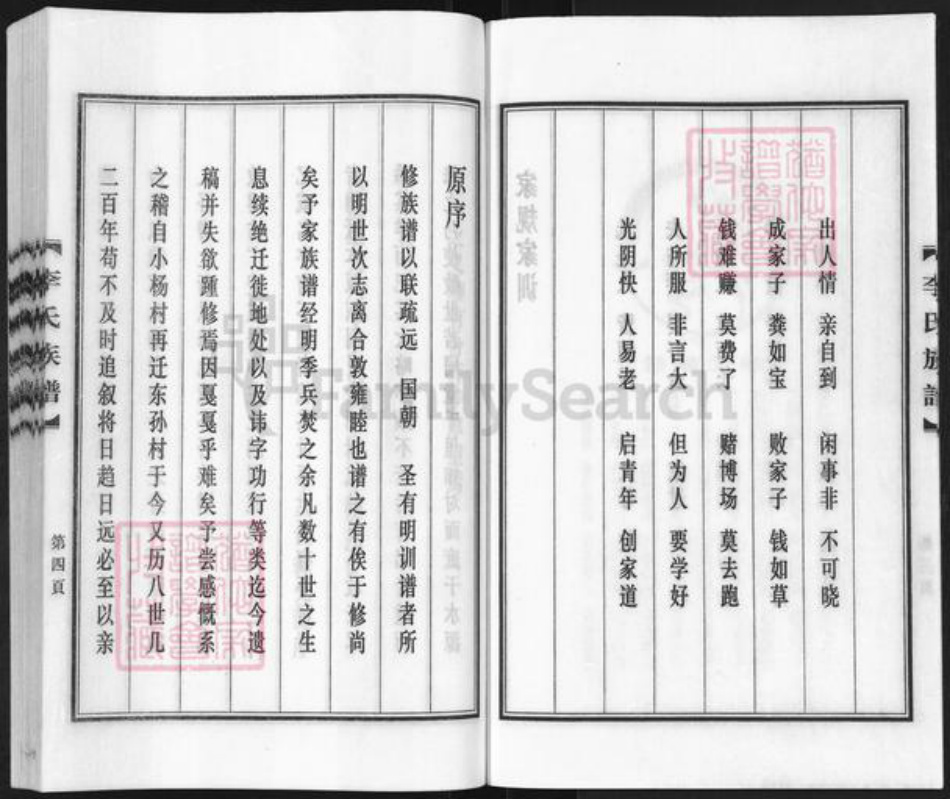 出人情 亲自到 闲事非 不可晓
成家子 粪如宝 败家子 钱如草
钱难赚 莫费了 赌博场 莫去跑
人所服 非言大 但为人 要学好
光阴快 人易老 启青年 创家道
家规家训
【李氏族譜】
原序
修族谱以联疏远 国朝 圣有明训谱者所
以明世次志离合敦雍睦也谱之有俟于修尚
矣予家族谱经明季兵焚之余凡数十世之生
息续绝迁徙地处以及讳字功行等类迄今遗
稿并失欲踵修焉因戛戛乎难矣予尝感慨系
之稽自小杨村再迁东孙村于今又历八世几
二百年苟不及时追叙将日趋日远必至以亲
【李氏族譜】
第四頁
FamilySearch